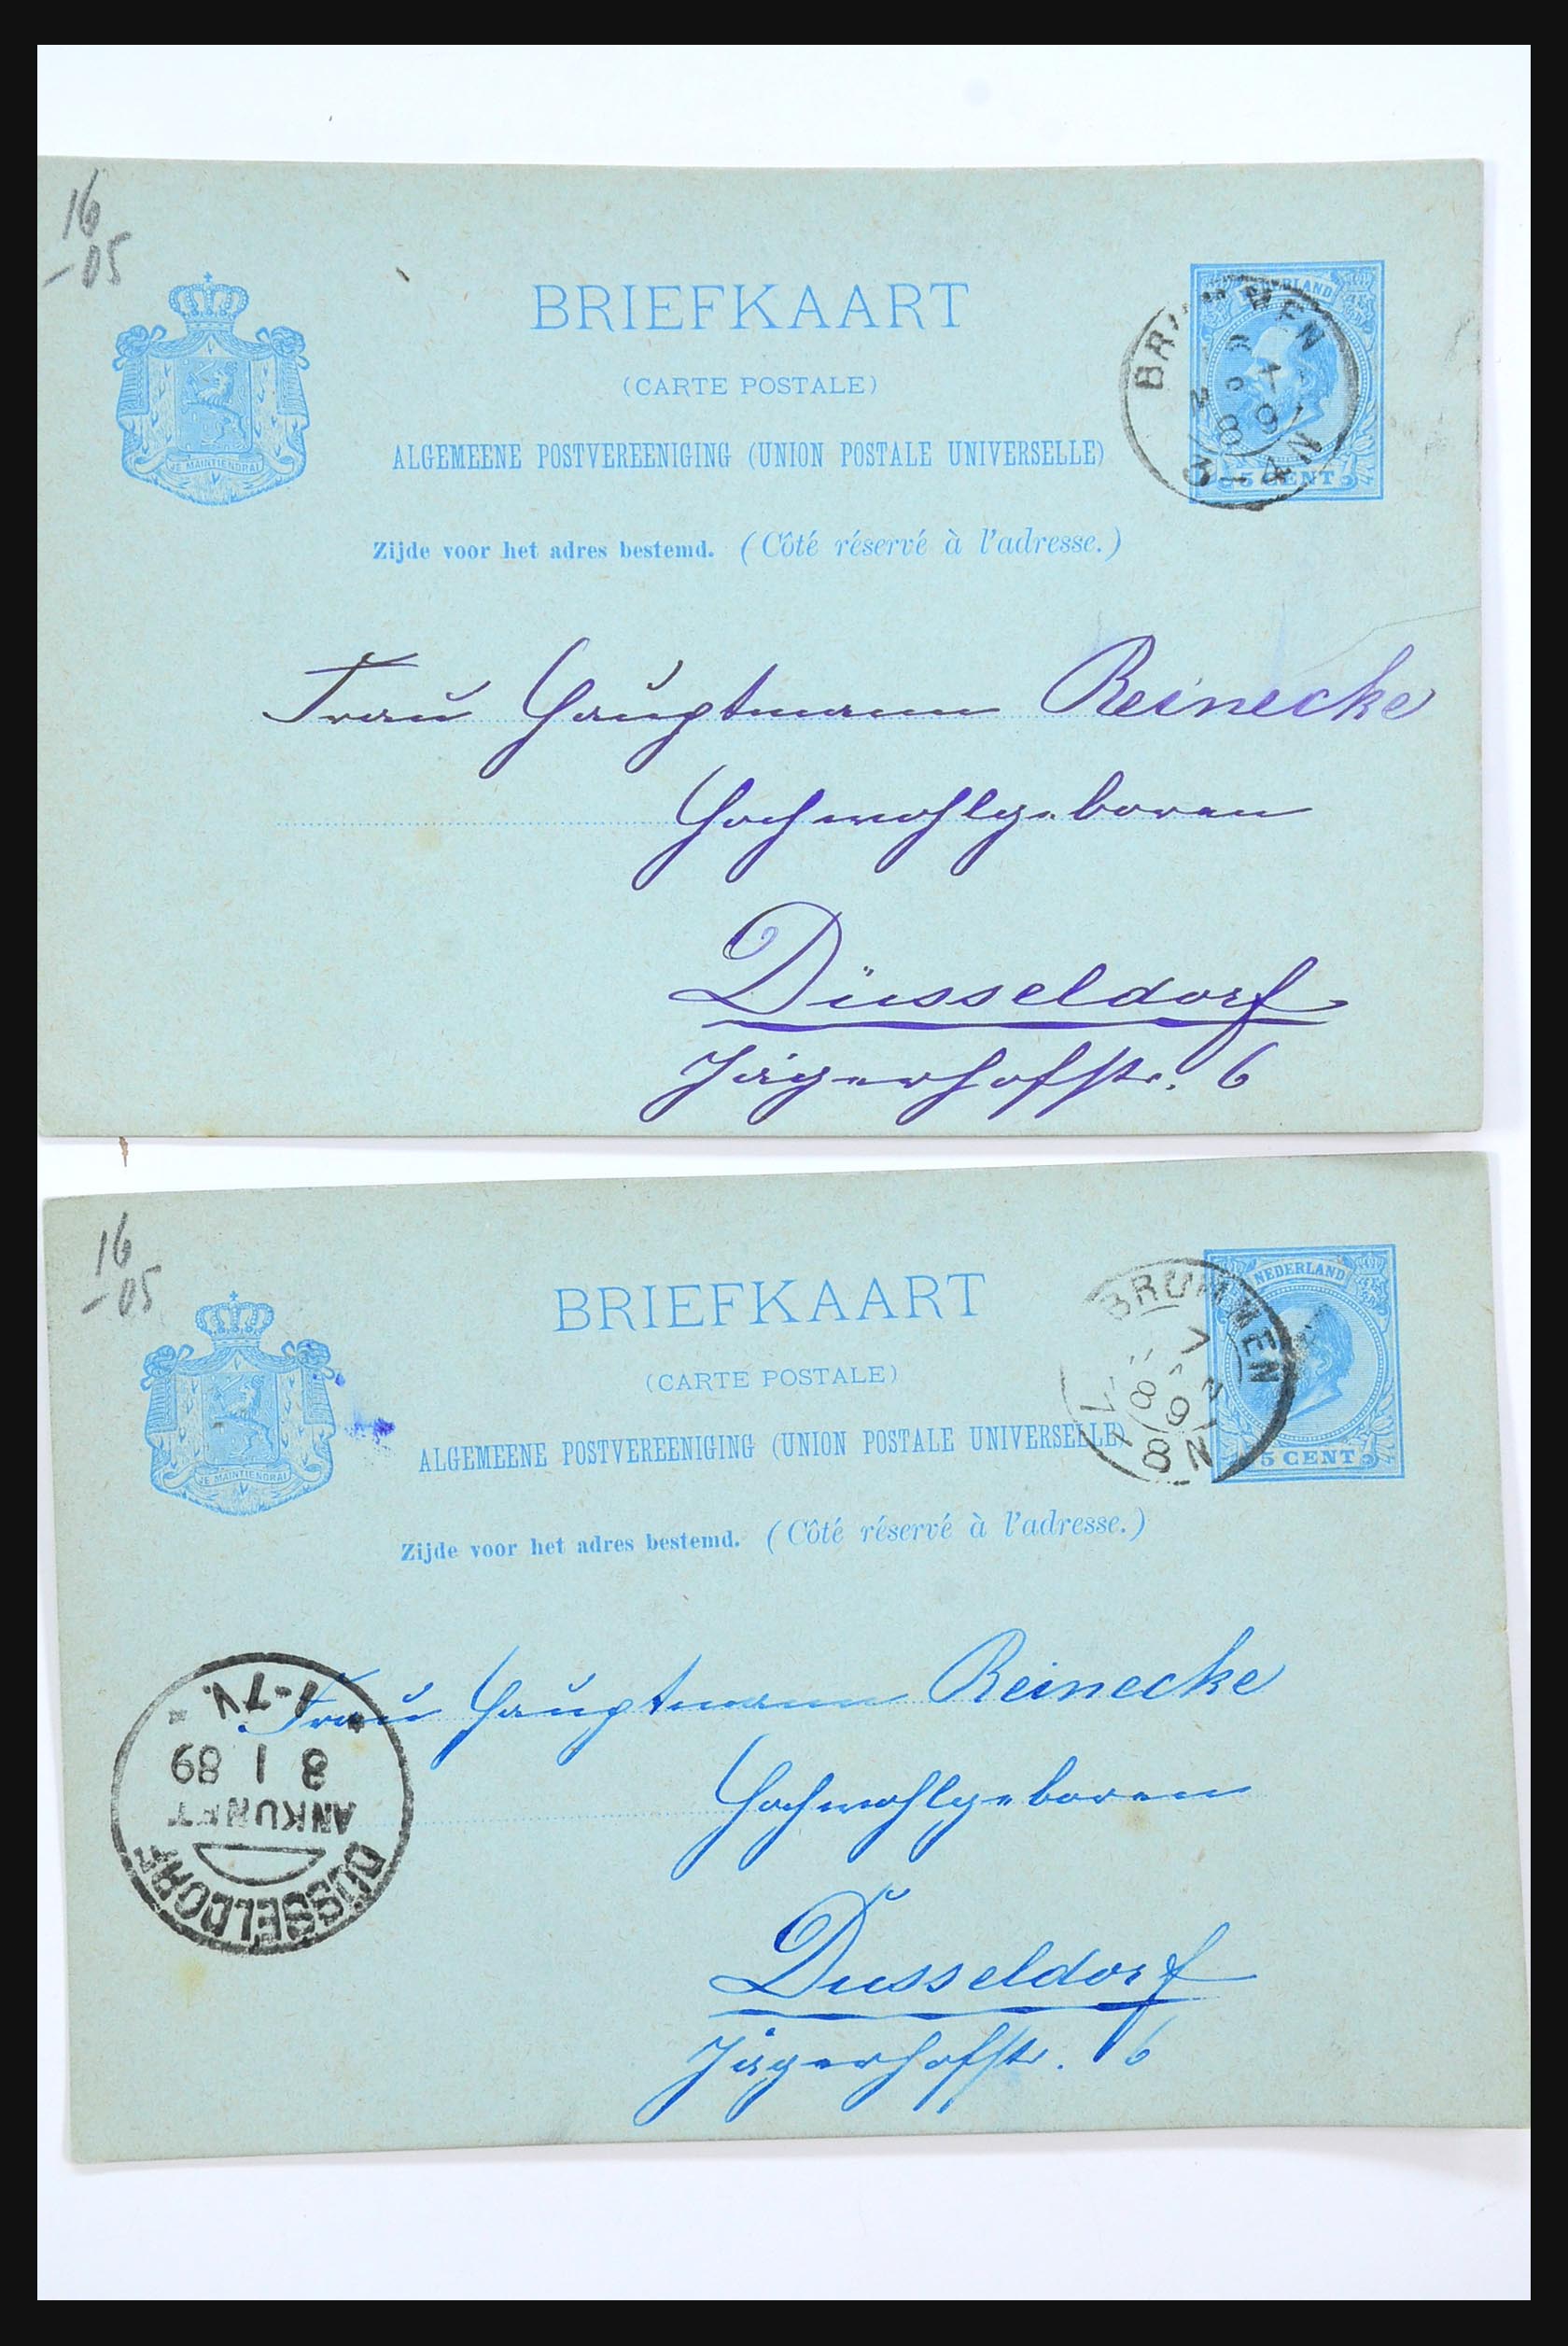 16
-05
BRIEFKAART
(CARTE POSTALE)
ALGEMEENE POSTVEREENIGING (UNION POSTALE UNIVERSELLE)
JE MAINTIENDRAI
NEDERLAND
5 CENT
Zijde voor het adres bestemd. (Côté réservé à l'adresse.)
Frau Hauptmann Reinecke
Hochwohlgeboren
Düsseldorf
Jägerhofstr. 6
16
-05
BRIEFKAART
(CARTE POSTALE)
ALGEMEENE POSTVEREENIGING (UNION POSTALE UNIVERSELLE)
JE MAINTIENDRAI
NEDERLAND
5 CENT
BRUMMEN
8 N
Zijde voor het adres bestemd. (Côté réservé à l'adresse.)
Frau Hauptmann Reinecke
Hochwohlgeboren
Düsseldorf
Jägerhofstr. 6
DÜSSELDORF
ANKUNFT
8 1 89
1-7V.